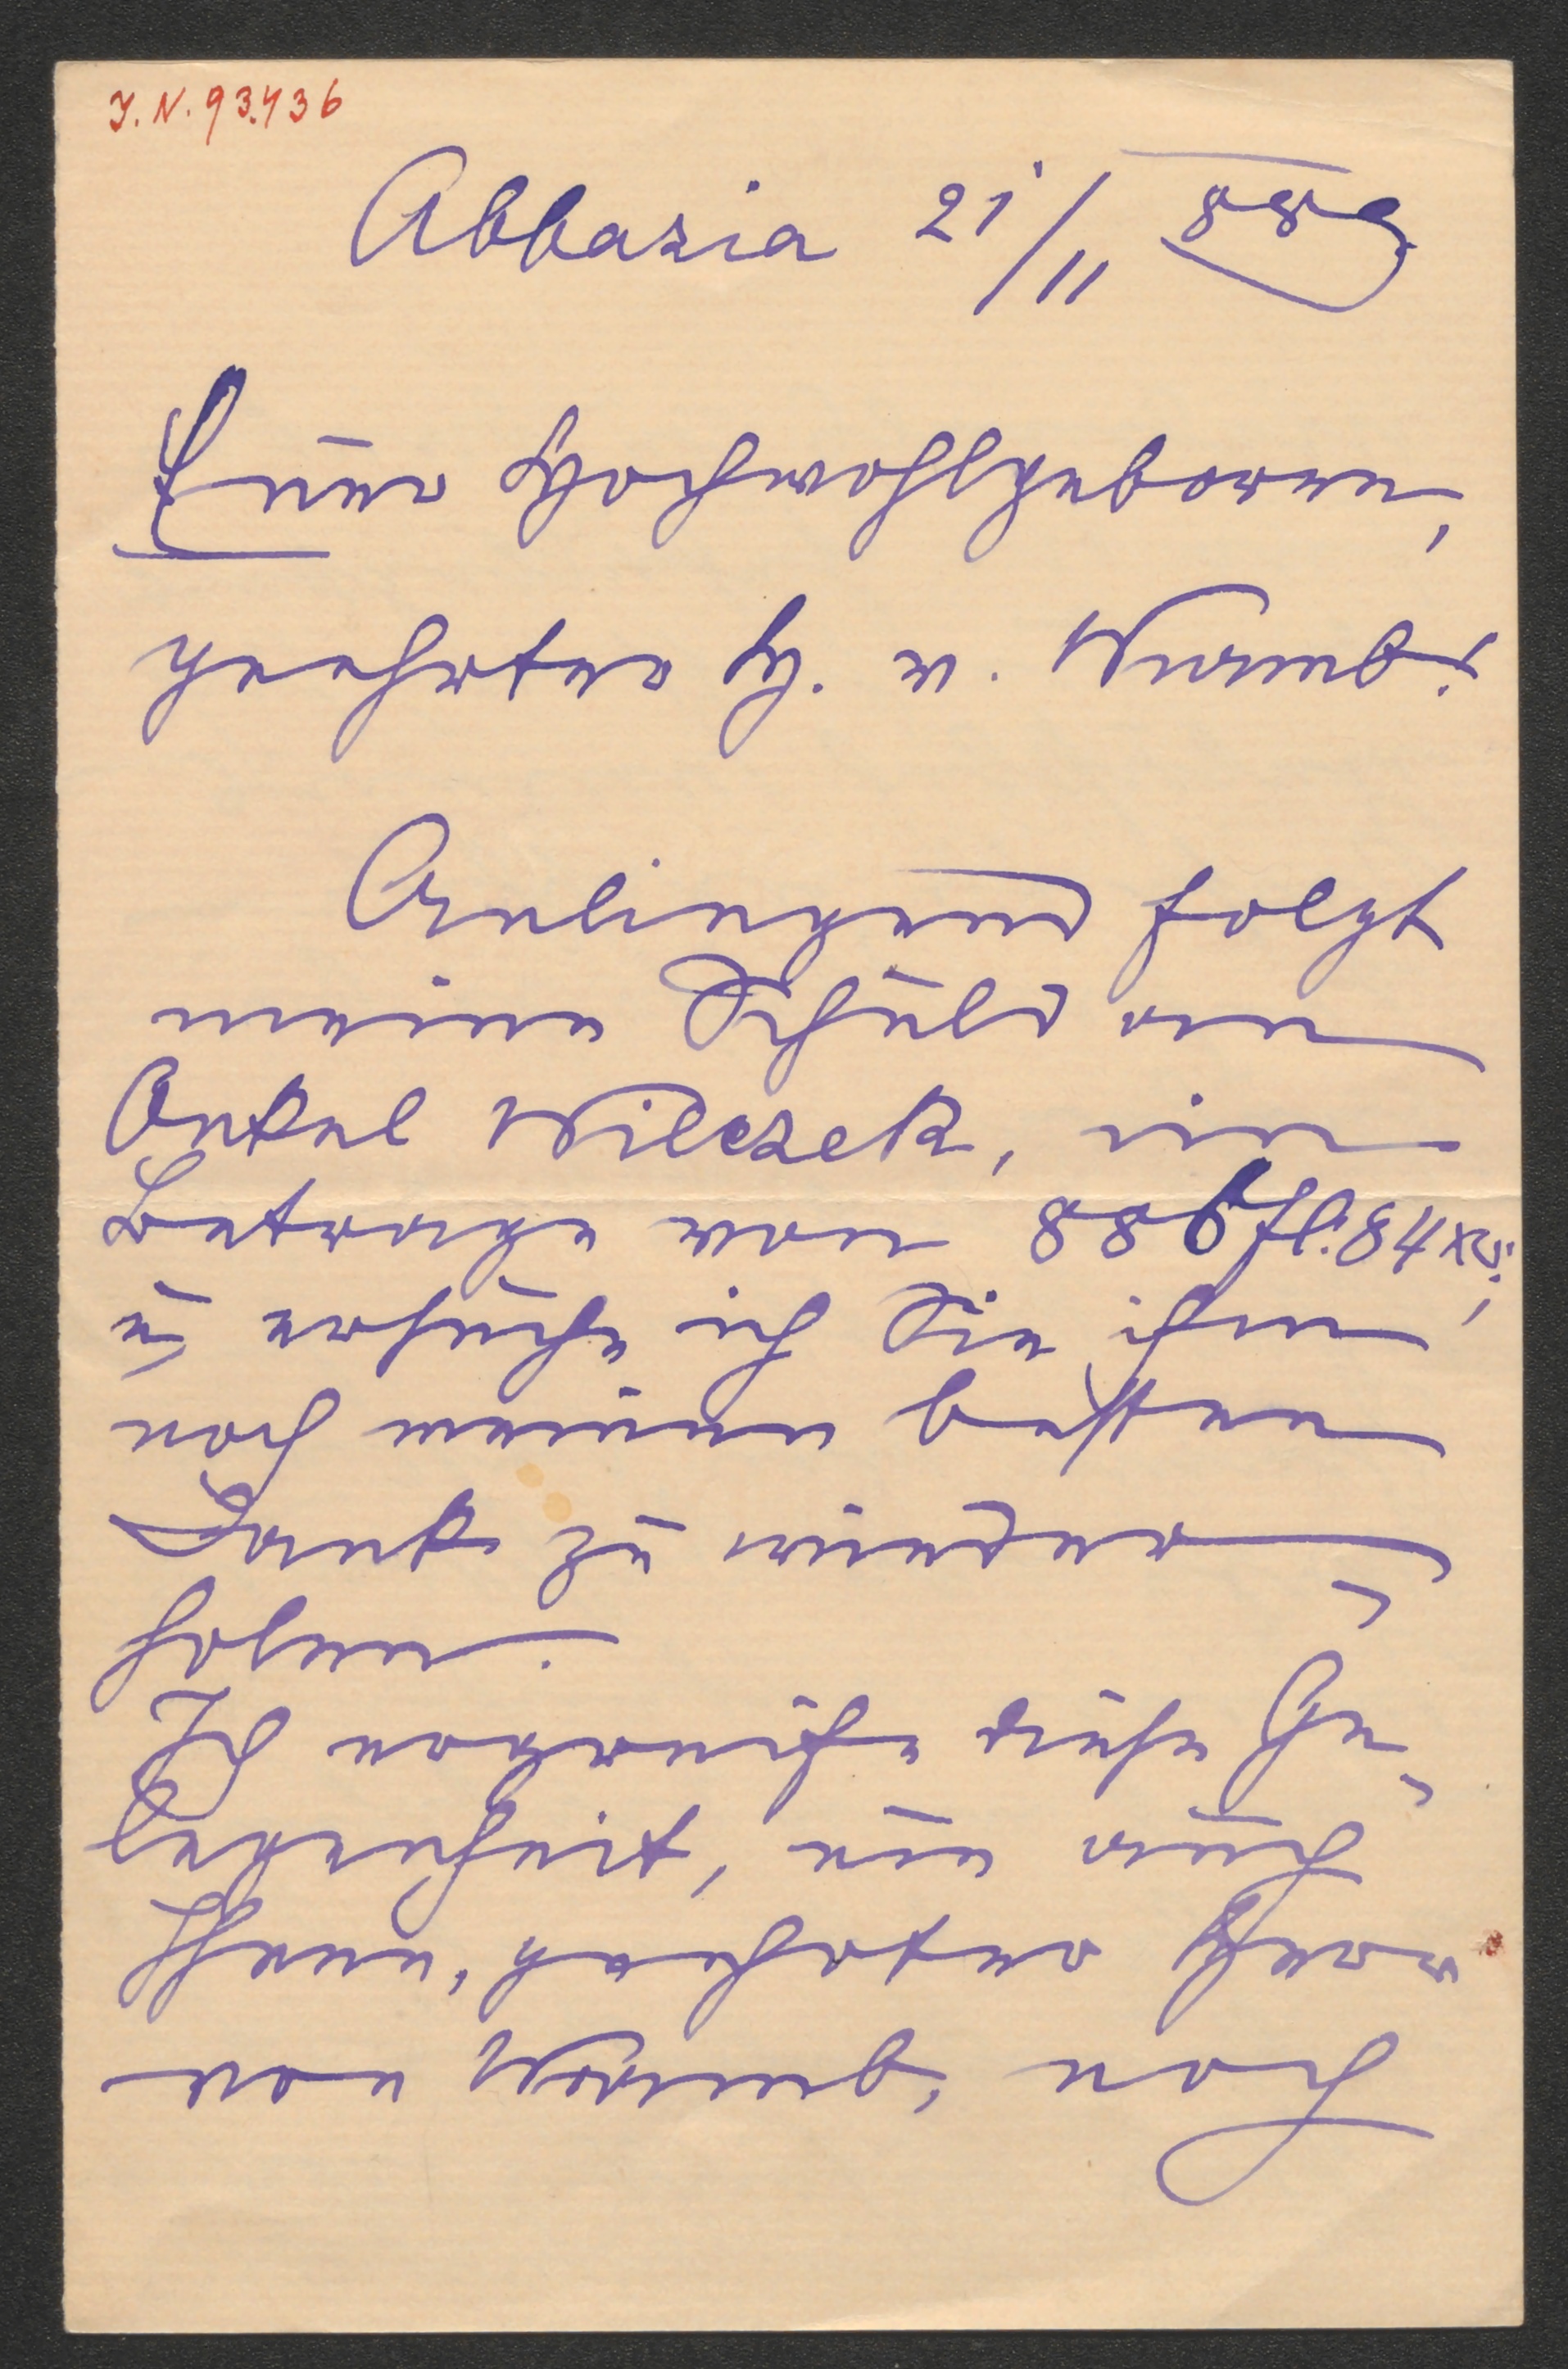 J.N. 93.436
Abbazia 21/11 889
Euer Hochwohlgeboren,
geehrter H. v. Wurmb!
Anliegend folgt
meine Schuld an
Onkel Wilczek, im
Betrage von 886 fl. 84 xr,
u ersuche ich Sie ihm
noch meinen besten
Dank zu wieder-
holen.
Ich ergreife diese Ge-
legenheit, um auch
Ihnen, geehrter Herr
von Wurmb, noch